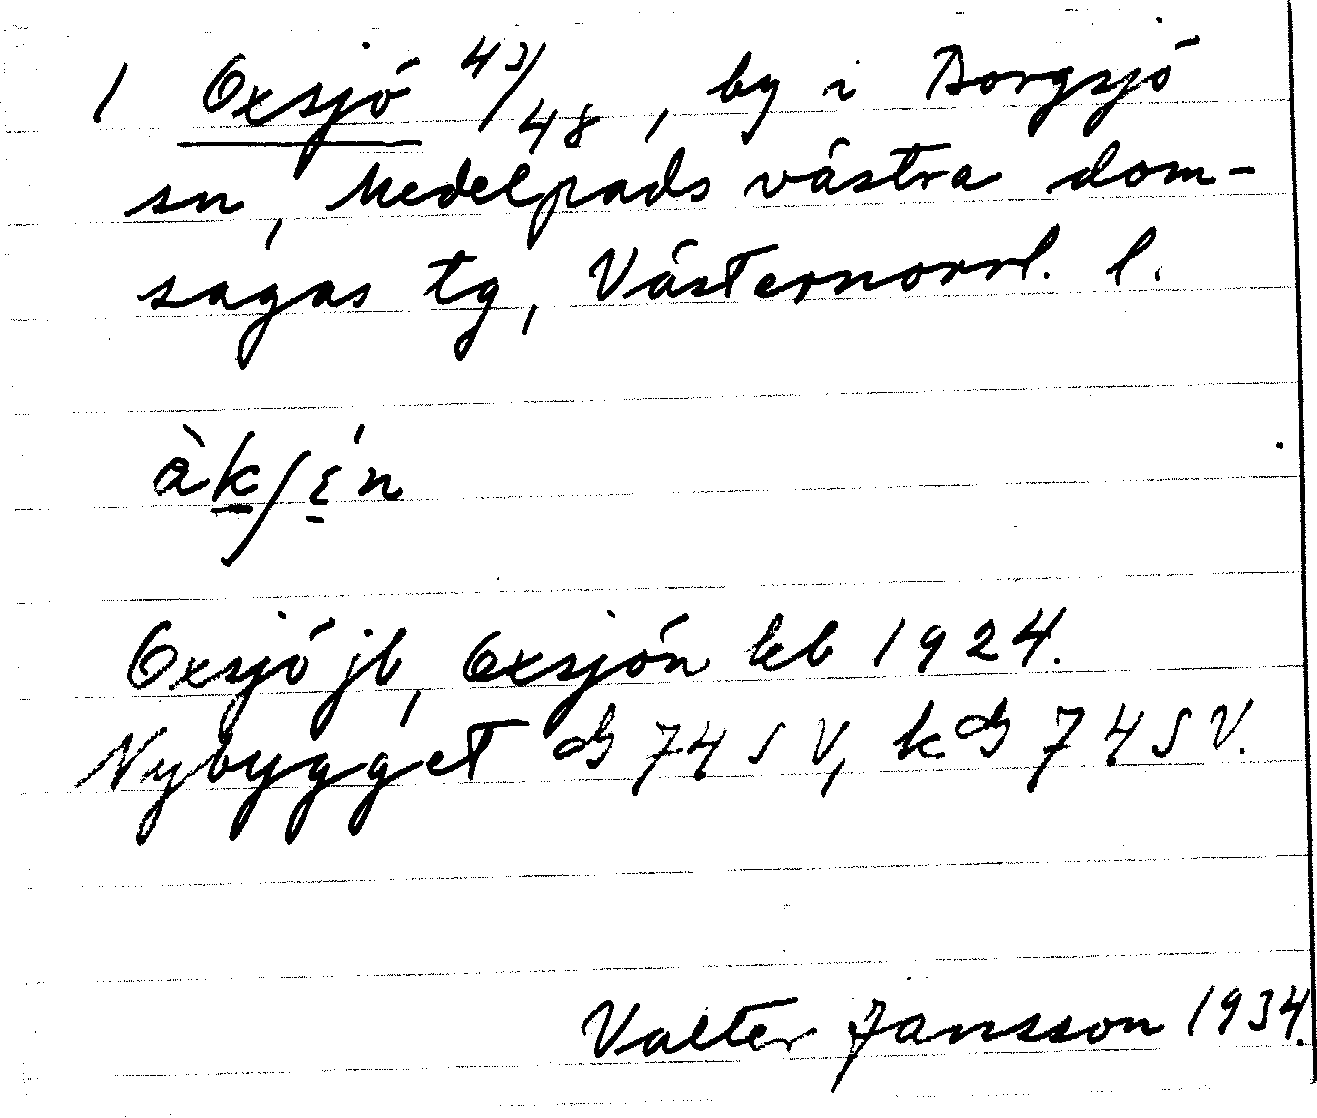 1 Oxsjö 43/48, by i Borgsjö
sn, Medelpads västra dom-
sagas tg, Västernorrl. l.
Oxsjö jb, Oxsjön kb 1924.
Nybygget ds 74 SV, kds 74 SV.
Valter Jansson 1934.